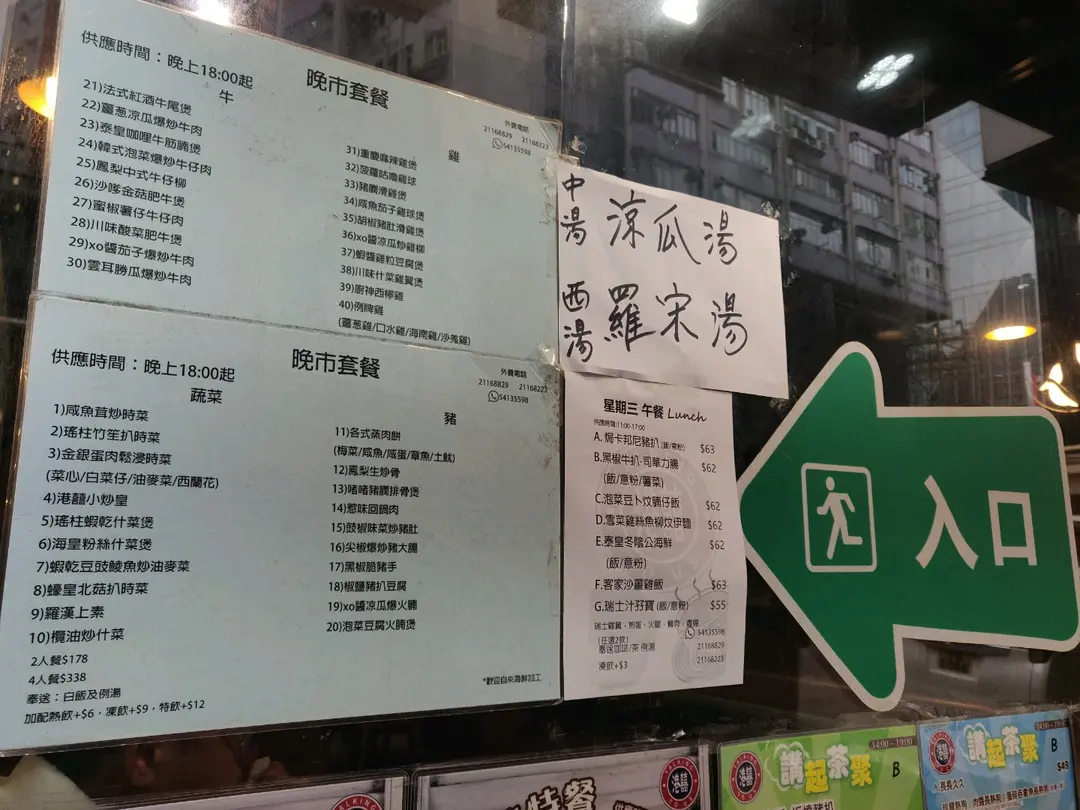 供應時間：晚上18:00起
晚市套餐
牛
外賣電話
21168829 21168223
54135598
21)法式紅酒牛尾煲
22)薑葱凉瓜爆炒牛肉
23)泰皇咖哩牛筋腩煲
24)韓式泡菜爆炒牛仔肉
25)鳳梨中式牛仔柳
26)沙嗲金菇肥牛煲
27)蜜椒薯仔牛仔肉
28)川味酸菜肥牛煲
29)xo醬茄子爆炒牛肉
30)雲耳勝瓜爆炒牛肉
雞
31)重慶麻辣雞煲
32)菠蘿咕嚕雞球
33)豬膶滑雞煲
34)咸魚茄子雞球煲
35)胡椒豬肚滑雞煲
36)xo醬凉瓜炒雞柳
37)蝦醬雞粒豆腐煲
38)川味什菜雞翼煲
39)廚神西檸雞
40)例牌雞
(薑葱雞/口水雞/海南雞/沙羗雞)
供應時間：晚上18:00起
晚市套餐
蔬菜
外賣電話
21168829 21168223
54135598
1)咸魚茸炒時菜
2)瑤柱竹笙扒時菜
3)金銀蛋肉鬆浸時菜
(菜心/白菜仔/油麥菜/西蘭花)
4)港囍小炒皇
5)瑤柱蝦乾什菜煲
6)海皇粉絲什菜煲
7)蝦乾豆豉鯪魚炒油麥菜
8)蠔皇北菇扒時菜
9)羅漢上素
10)欖油炒什菜
2人餐$178
4人餐$338
奉送：白飯及例湯
加配熱飲+$6，凍飲+$9，特飲+$12
豬
11)各式蒸肉餅
(梅菜/咸魚/咸蛋/章魚/土魷)
12)鳳梨生炒骨
13)啫啫豬膶排骨煲
14)惹味回鍋肉
15)豉椒味菜炒豬肚
16)尖椒爆炒豬大腸
17)黑椒脆豬手
18)椒鹽豬扒豆腐
19)xo醬凉瓜爆火腩
20)泡菜豆腐火腩煲
*歡迎自來海鮮加工
中湯 涼瓜湯
西湯 羅宋湯
星期三 午餐 Lunch
供應時間:11:00-17:00
A.焗卡邦尼豬扒(飯/意粉) $63
B.黑椒牛扒-司華力腸 $62
(飯/意粉/薯菜)
C.泡菜豆卜炆腩仔飯 $62
D.雪菜雞絲魚柳炆伊麵 $62
E.泰皇冬陰公海鮮 $62
(飯/意粉)
F.客家沙薑雞飯 $63
G.瑞士汁孖寶(飯/意粉) $55
瑞士雞翼，煎蛋，火腿，餐肉，香腸
(任選2款)
奉送咖啡/茶 例湯
凍飲+$3
54135598
21168829
21168223
入口
港囍
特餐
港囍
講起茶聚
14:00-19:00
B
港囍
講起茶聚
14:00-19:00
B
$49